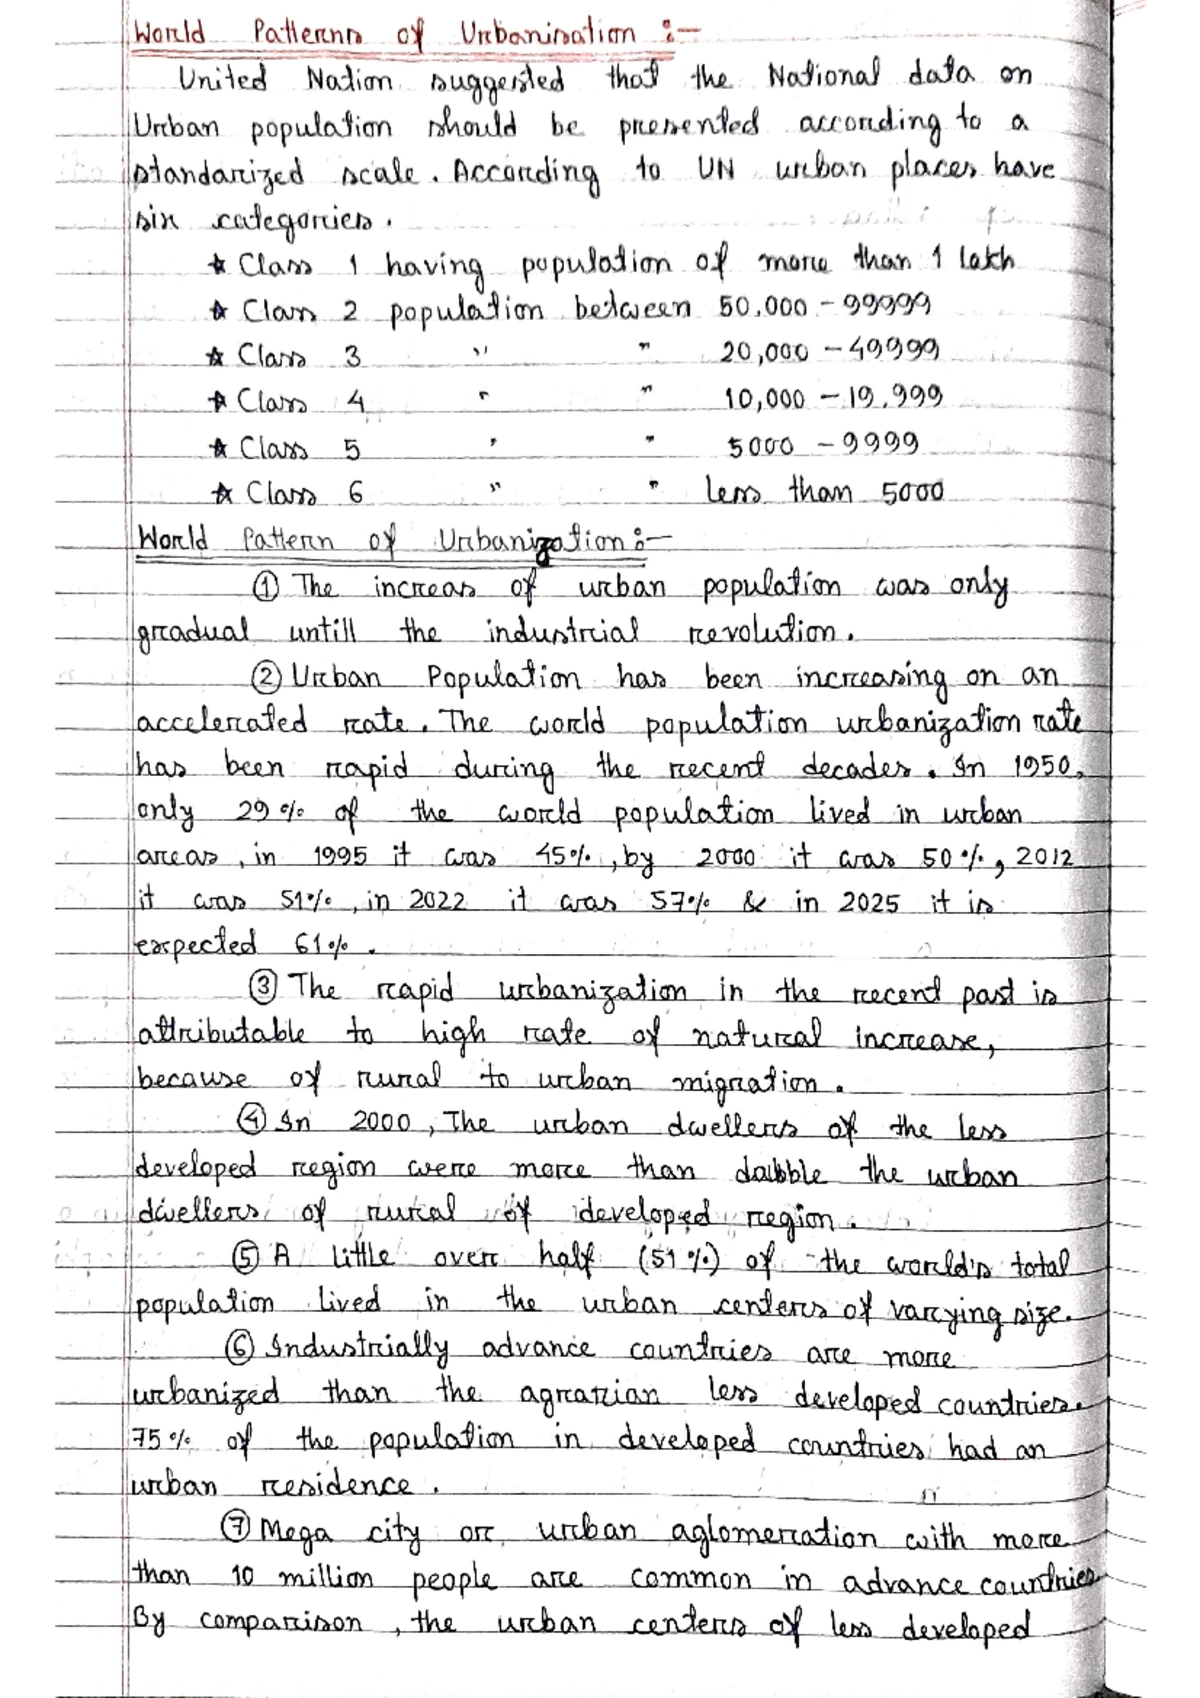 World Patterns of Urbanisation :-
United Nation suggested that the National data on
Urban population should be presented according to a
standarized scale. According to UN urban places have
six categories.
☆ Class 1 having population of more than 1 lakh
☆ Class 2 population between 50,000 - 99999
☆ Class 3 " " 20,000 - 49999
☆ Class 4 " " 10,000 - 19,999
☆ Class 5 " " 5000 - 9999
☆ Class 6 " " less than 5000
World Pattern of Urbanization :-
① The increas of urban population was only
gradual untill the industrial revolution.
② Urban Population has been increasing on an
accelerated rate. The world population urbanization rate
has been rapid during the recent decades. In 1950,
only 29% of the world population lived in urban
areas, in 1995 it was 45%, by 2000 it was 50%, 2012
it was 51%, in 2022 it was 57% & in 2025 it is
expected 61%.
③ The rapid urbanization in the recent past is
attributable to high rate of natural increase,
because of rural to urban migration.
④ In 2000, The urban dwellers of the less
developed region were more than dabble the urban
dwellers of rural of developed region.
⑤ A little over half (51%) of the world's total
population lived in the urban centers of varying size.
⑥ Industrially advance countries are more
urbanized than the agrarian less developed countries.
75% of the population in developed countries had an
urban residence.
⑦ Mega city or urban aglomeration with more
than 10 million people are common in advance countries
By comparison, the urban centers of less developed